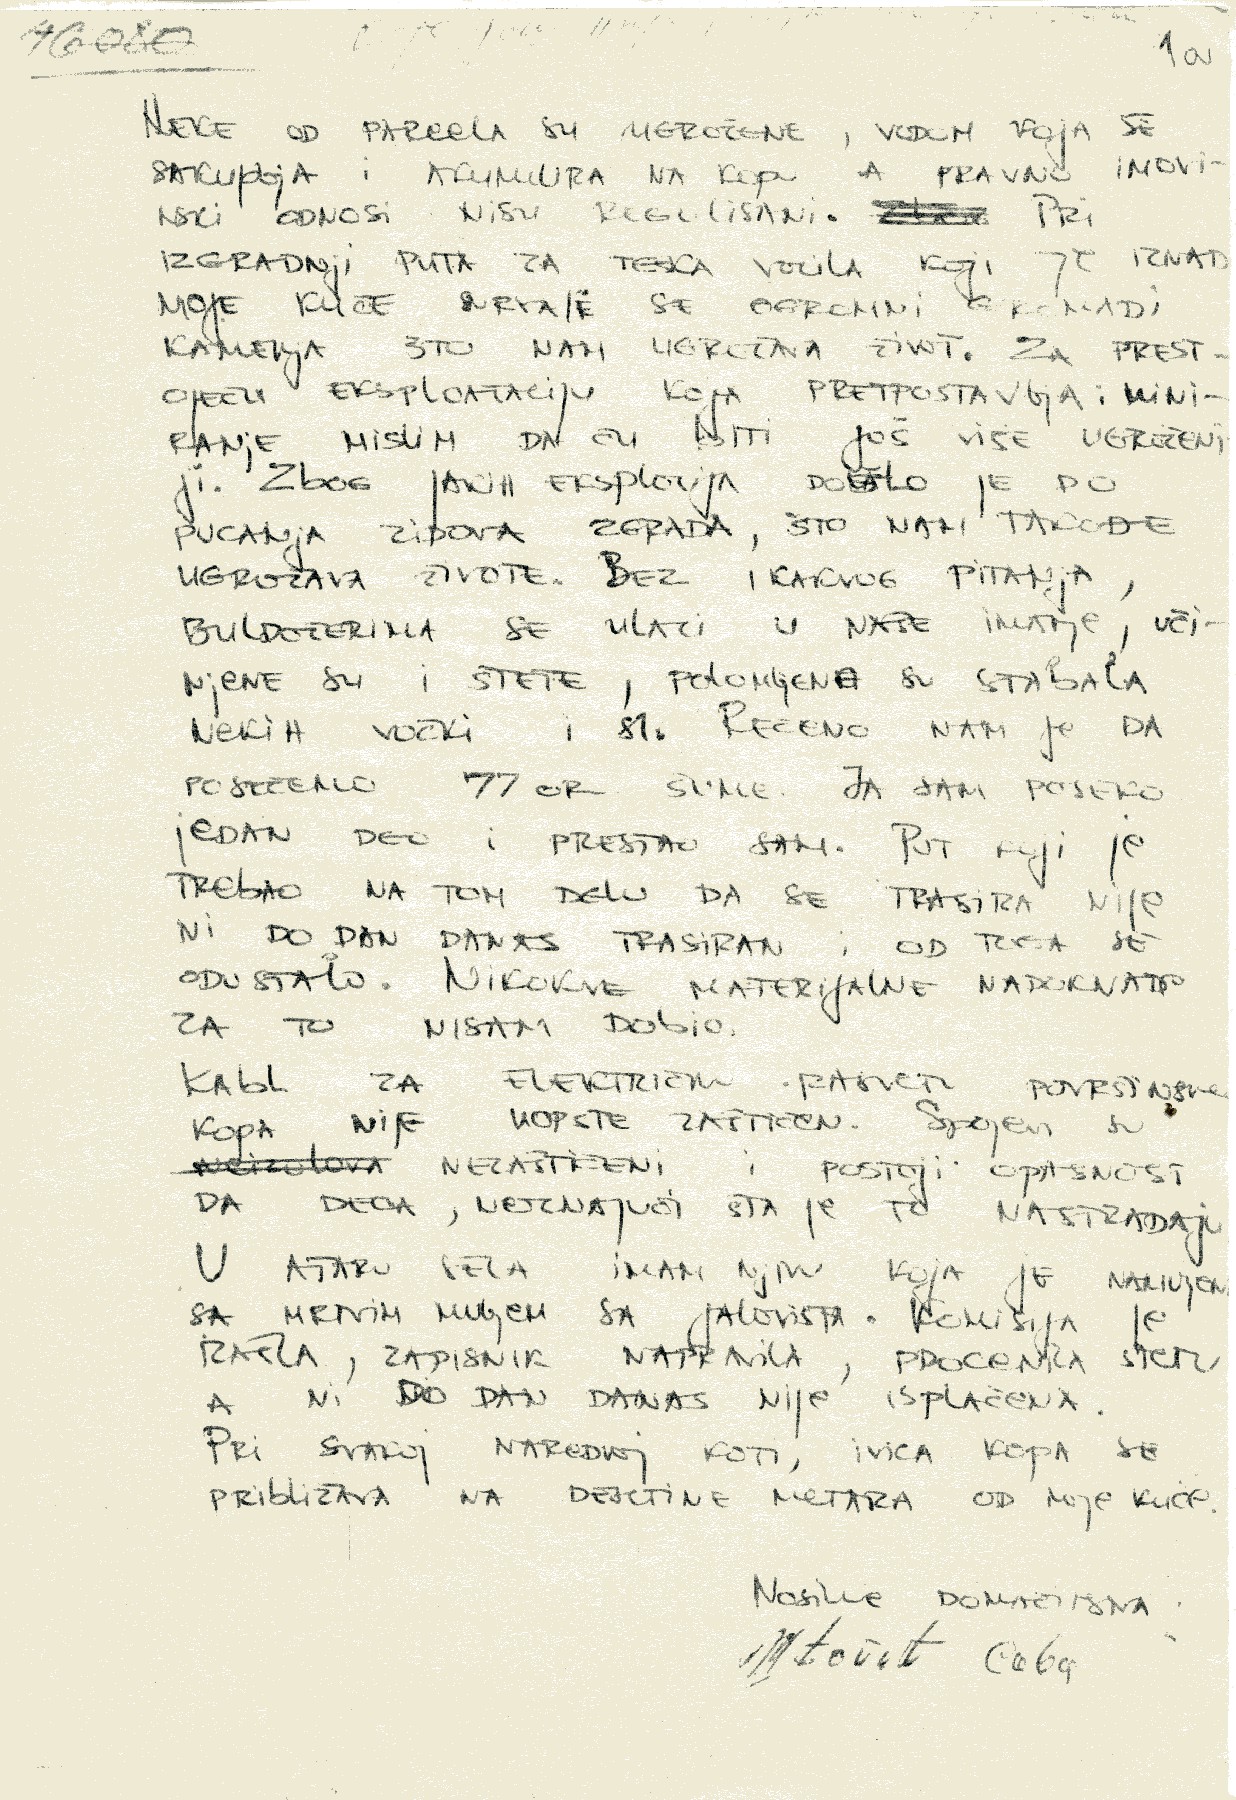 1a
NEKE OD PARCELA SU UGROŽENE, VODOM KOJA SE
SAKUPLJA I AKUMULIRA NA KOPU A PRAVNO IMOVI-
NSKI ODNOSI NISU REGULISANI. PRI
IZGRADNJI PUTA ZA TEŠKA VOZILA KOJI JE IZNAD
MOJE KUĆE SURVAJE SE OGROMNI GROMADI
KAMENJA ŠTO NAM UGROŽAVA ŽIVOT. ZA PREST-
OJEĆU EKSPLOATACIJU KOJA PRETPOSTAVLJA I MINI-
RANJE MISLIM DA ĆU BITI JOŠ VIŠE UGROŽENI
JI. ZBOG JAKIH EKSPLOZIJA DOŠLO JE DO
PUCANJA ZIDOVA ZGRADA, ŠTO NAM TAKOĐE
UGROŽAVA ŽIVOTE. BEZ IKAKVOG PITANJA,
BULDOŽERIMA SE ULAZI U NAŠE IMANJE, UČI-
NJENE SU I ŠTETE, POLOMLJENA SU STABALA
NEKIH VOĆKI I SL. REČENO NAM JE DA
POSEČEMO 77 AR ŠUME. JA SAM POSEKO
JEDAN DEO I PRESTAO SAM. PUT KOJI JE
TREBAO NA TOM DELU DA SE TRASIRA NIJE
NI DO DAN DANAS TRASIRAN I OD TOGA SE
ODUSTALO. NIKAKVE MATERIJALNE NADOKNADE
ZA TO NISAM DOBIO.
KABL ZA ELEKTRIČNU RASVETU POVRŠINSKOG
KOPA NIJE UOPŠTE ZAŠTIĆEN. SPOJEVI SU
NEZAŠTIĆENI I POSTOJI OPASNOST
DA DECA, NEZNAJUĆI ŠTA JE TO NASTRADAJU
U ATARU SELA IMAM NJIVU KOJA JE
SA MRTVIM MULJEM SA JALOVIŠTA. KOMISIJA JE
IZAŠLA, ZAPISNIK NAPRAVILA, PROCENILA ŠTETU
A NI DO DAN DANAS NIJE ISPLAĆENA.
PRI SVAKOJ NAREDNOJ KOTI, IVICA KOPA SE
PRIBLIŽAVA NA DESETINE METARA OD MOJE KUĆE.
NOSILAC DOMAĆINSTVA